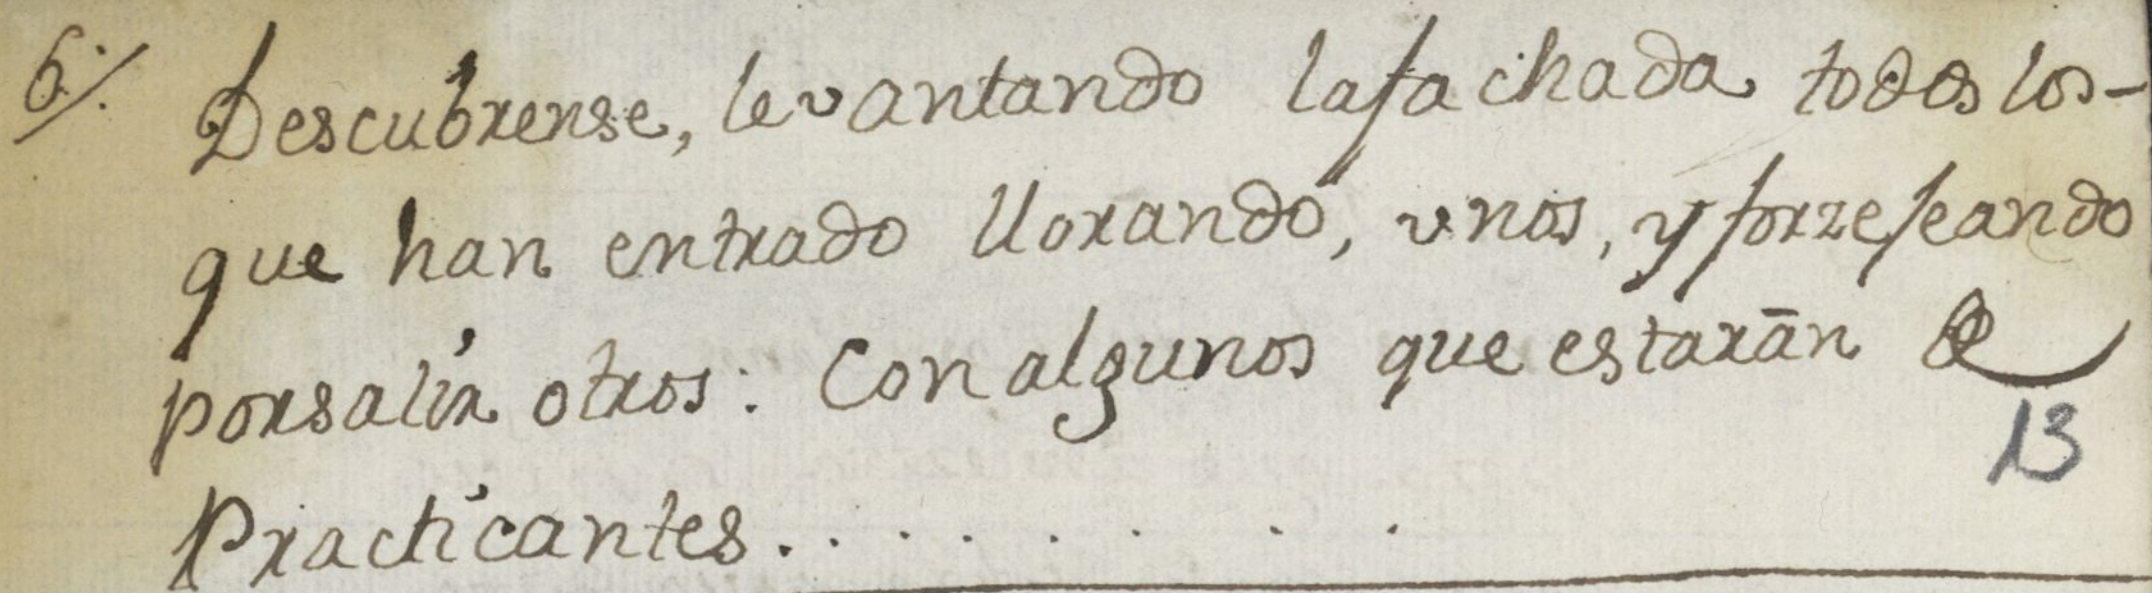 6./. Descubrense, levantando lafachada todos los-
que han entrado llorando, vnos, y forzeseando
porsalir otros: Con algunos que estarān de
13
Practicantes. . . . . . . .